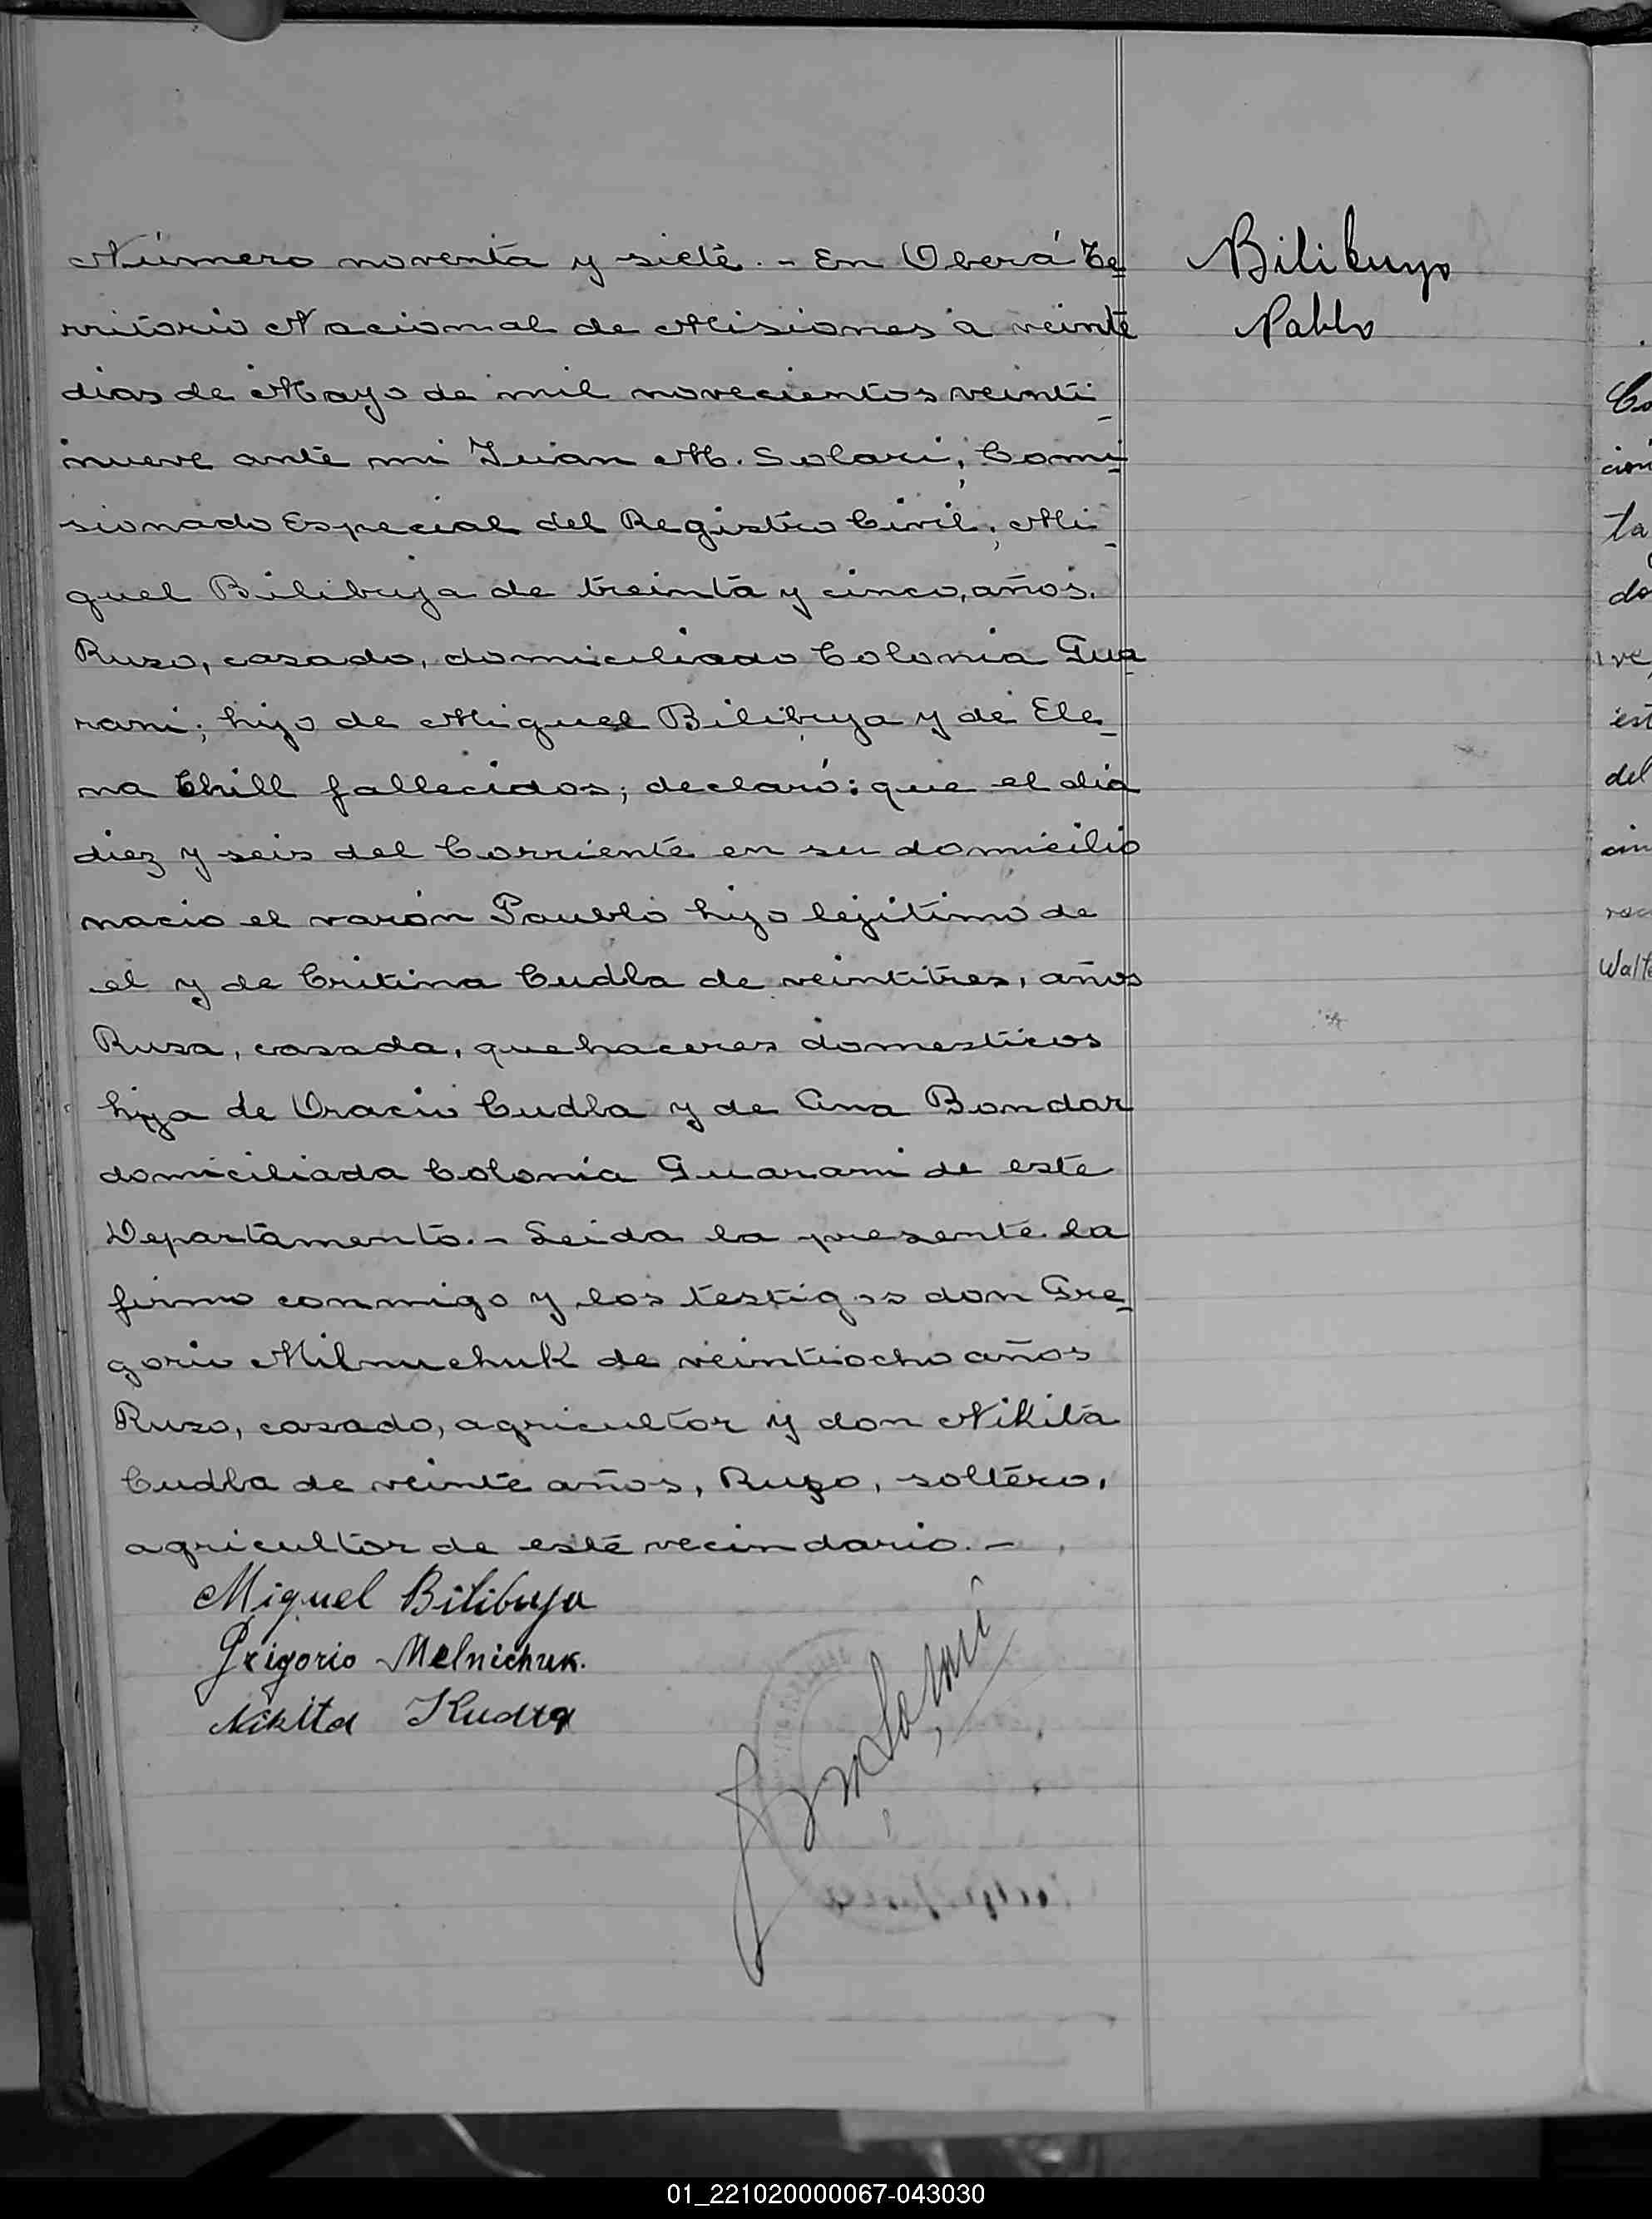 Número noventa y siete.- En Oberá Te_
rritorio Nacional de Misiones a veinte
dias de Mayo de mil novecientos veinti_
nueve ante mi Juan M. Solari, Comi_
sionado Especial del Registro Civil, Mi_
guel Bilibuja de treinta y cinco, años.
Ruso, casado, domiciliado Colonia Gua
rani; hijo de Miguel Bilibuja y de Ele_
na Chill fallecidos; declaró: que el dia
diez y seis del Corriente en su domicilio
nacio el varón Paublo hijo lejitimo de
el y de Critina Cudla de veintitres, años
Rusa, casada, quehaceres domesticos
hija de Oracio Cudla y de Ana Bondar
domiciliada Colonia Guarani de este
Departamento.- Leida la presente la
firmo conmigo y los testigos don Gre_
gorio Milnuchuk de veintiocho años
Ruso, casado, agricultor y don Nikita
Cudla de veinte años, Ruso, soltero,
agricultor de este vecindario.-
Miguel Bilibuja
Grigorio Melnichuk.
Nikita Kudla
JMSolari
Bilibuyo
Pablo
Co
cion
ta
do
ve,
est
del
cin
Walte
01_221020000067-043030